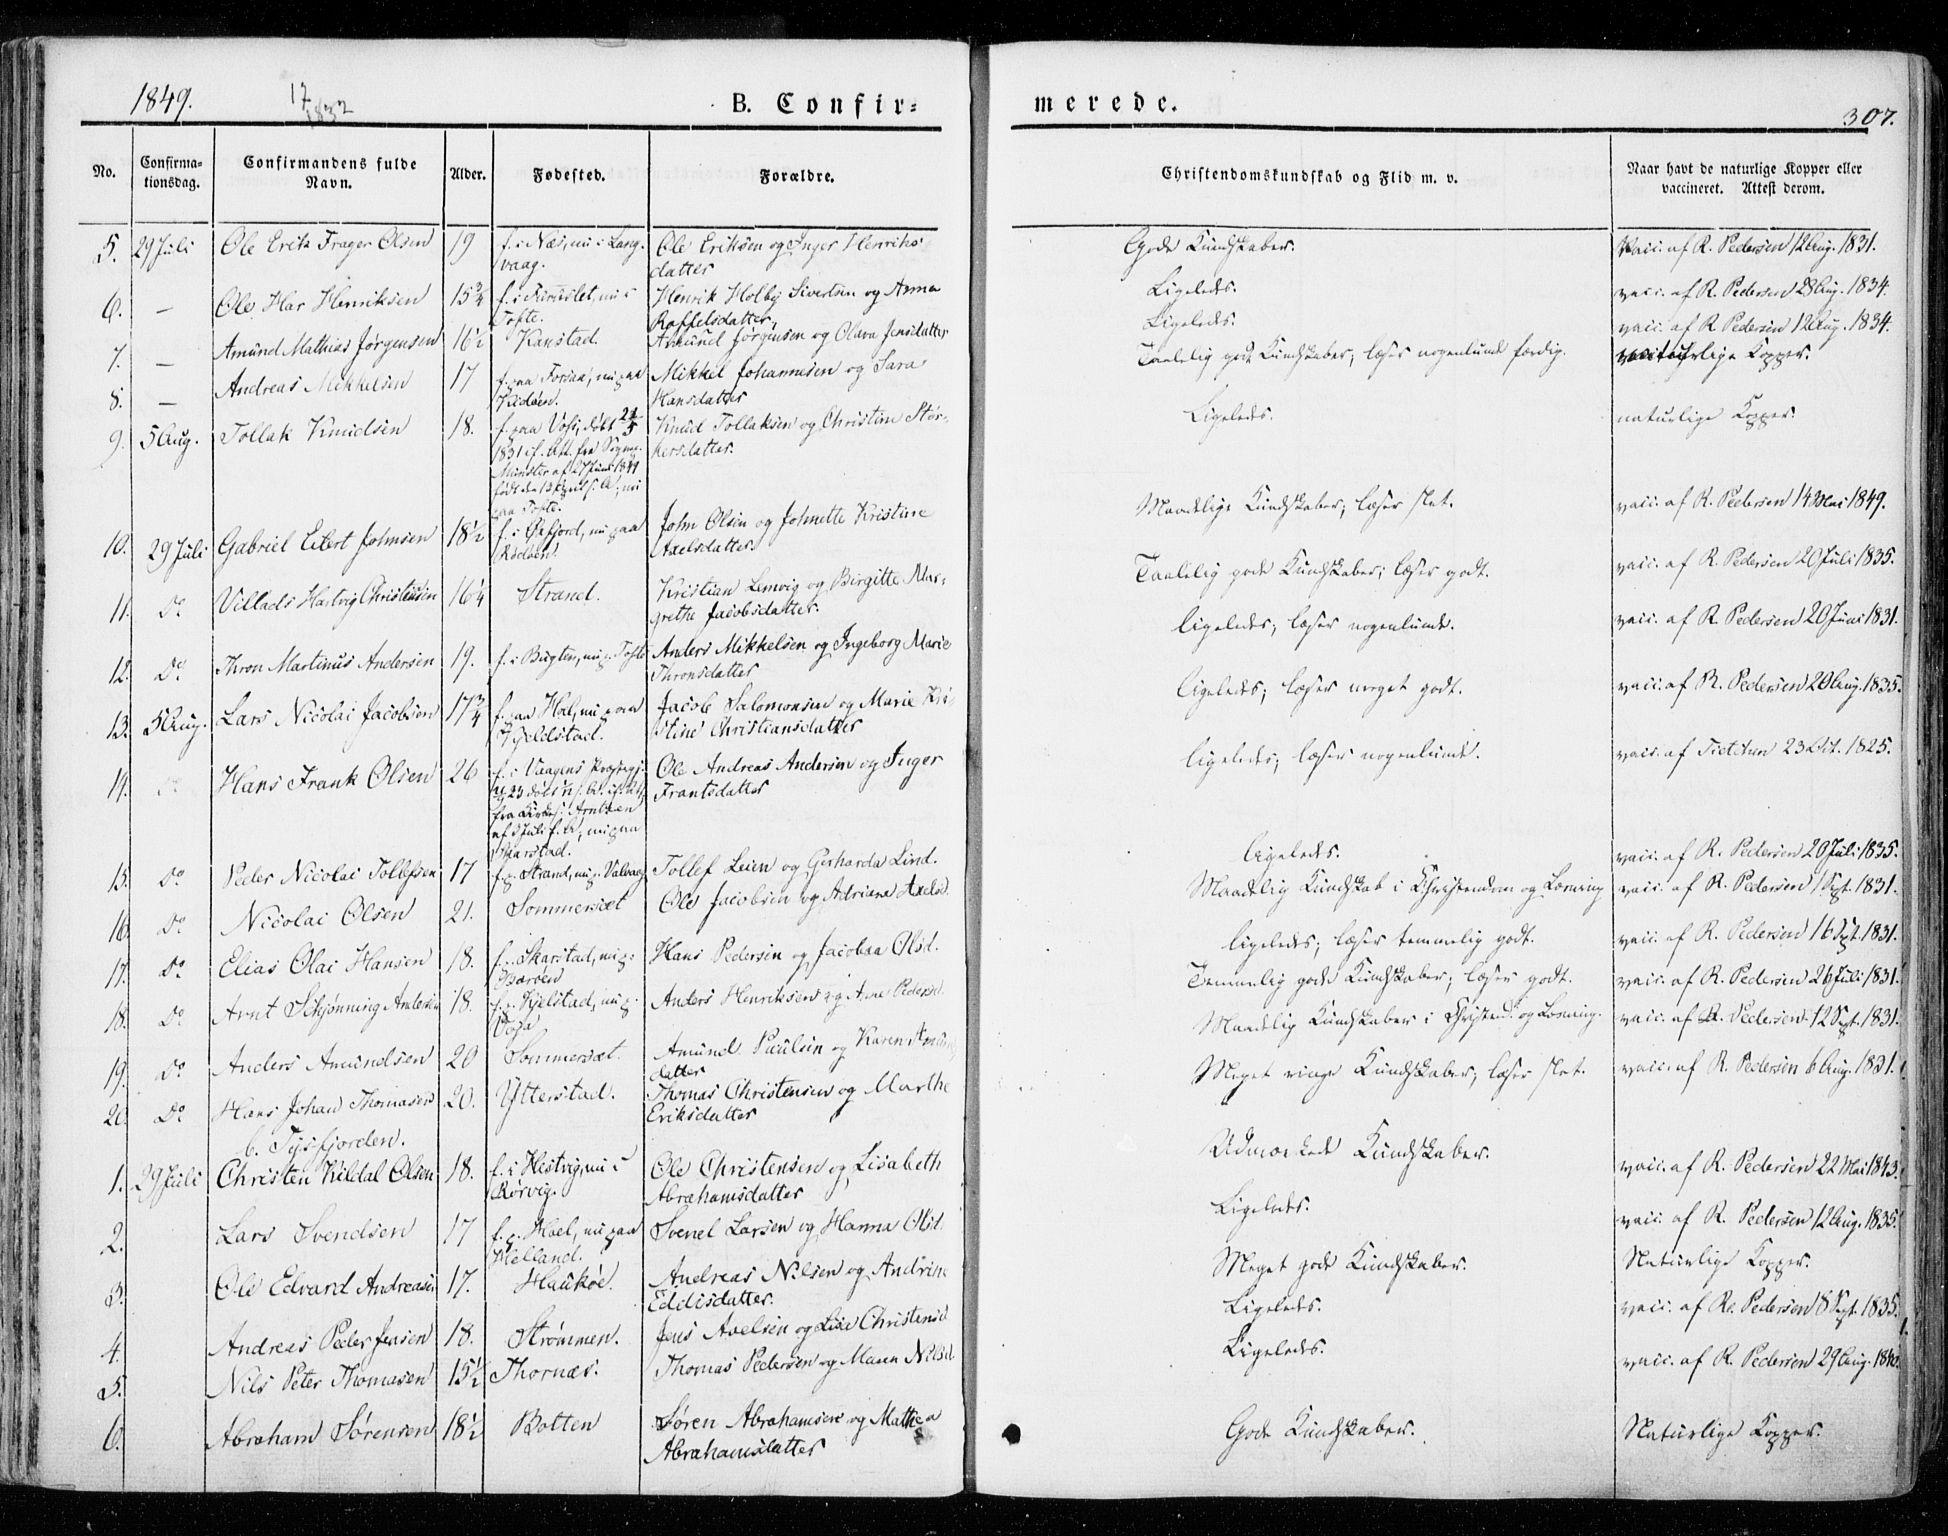 1849.
17
1832
B. Confir=
merede.
307.
No.
Confirma=
tionsdag.
Confirmandens fulde
Navn.
Alder.
Fødested.
Forældre.
Christendomskundskab og Flid m. v.
Naar havt de naturlige Kopper eller
vaccineret. Attest derom.
5. 29 Juli Ole Erik Frager Olsen 19 f. i Næs, nu i Lang- Ole Eriksen og Inger Henriks Gode Kundskaber. Vacc. af R. Pedersen 12 Aug. 1831.
vaag. datter
6. — Ole Har Henriksen 15 3/4 nu i Henrik Holby Sivertsen og Anna Ligeledes. vacc. af R. Pedersen 28 Aug. 1834.
Tofte. Roffelsdatter,
7. — Amund Mathias Jørgensen 16 1/2 Kanstad. Amund Jørgensen og Olava Jensdatter Ligeledes. vacc. af R. Pedersen 12 Aug. 1834.
8. — Andreas Mikkelsen 17 f. paa Forsaa, nu paa Mikkel Johannesen og Sara Taalelig gode Kundskaber; læser nogenlunde færdig. naturlige Kopper.
Hansdatter
9. 5 Aug. Tollak Knudsen 18. f. paa Vos, døbt 24/5 Knud Tollaksen og Christin Stør- Ligeledes. naturlige Kopper.
1831 if. Att. fra Sogne- kersdatter.
født den 13 April s. A; nu
paa Tofte.
10. 29 Juli Gabriel Eilert Johnsen 18 1/2 f. i Øxfjord, nu paa John Olsen og Johnette Kristine Maadelige Kundskaber; læser slet. vacc. af R. Pedersen 14 Mai 1849.
Rødøen. Axelsdatter.
11. Do Villads Hartvig Christensen 16 1/4 Strand. Kristian Lemvig og Birgitte Mar- Taalelig gode Kundskaber; læser godt. vacc. af R. Pedersen 20 Juli 1835.
grethe Jacobsdatter.
12. Do Thron Martinus Andersen 19. f. i Bugten, nu p. Tofte Anders Mikkelsen og Ingeborg Marie ligeledes; læser nogenlunde. vacc. af R. Pedersen 20 Juni 1831.
Thronsdatter
13. 5 Aug. Lars Nicolai Jacobsen 17 3/4 f. paa Hol, nu paa Jacob Salomonsen og Marie Kri- ligeledes; læser meget godt. vacc. af R. Pedersen 20 Aug. 1835.
Kjeldstad. stine Christiansdatter
14. Do Hans Frank Olsen 26 f. i Vaagens Præstegj. Ole Andreas Andersen og Inger ligeledes; læser nogenlunde. vacc. af Tietchen 23 Oct. 1825.
Frantsdatter
af 3 Juli s. A, nu paa
Skarstad.
15. Do Peder Nicolai Tollefsen 17 f. p. Strand, nu p. Valvaag Tollef Leien og Gerharda Lind. ligeledes. vacc. af R. Pedersen 20 Juli 1835.
16. Do Nicolai Olsen 21. Sommersæt Ole Jacobsen og Adriana Axelsd. Maadelig Kundskab i Christendom og Læsning vacc. af R. Pedersen 1 Sept. 1831.
17. Do Elias Olai Hansen 18. f. i Skarstad, nu p. Hans Pedersen og Jacobaa Olsd. ligeledes; læser temmelig godt. vacc. af R. Pedersen 16 Sept. 1831.
Barøen
18. Do Arnt Schjønning Andersen 18. f. p. Kjelstad, nu p. Anders Henriksen og Ane Pedersd. Temmelig gode Kundskaber; læser godt. vacc. af R. Pedersen 26 Juli 1831.
19. Do Anders Amundsen 20 Sommersæt. Amund Paulsen og Karen Amunds Maadelig Kundskaber i Christend. og Læsning. vacc. af R. Pedersen 12 Sept. 1831.
datter
20. Do Hans Johan Thomasen 20. Ytterstad. Thomas Christensen og Marthe Meget ringe Kundskaber, læser slet. vacc. af R. Pedersen 6 Aug. 1831.
Eriksdatter
b. Tysfjorden.
1. 29 Juli Christen Kildal Olsen 18. f. i Hestvig, nu i Ole Christensen og Lisabeth Udmærkede Kundskaber. vacc. af R. Pedersen 22 Mai 1843.
Rørvig. Abrahamsdatter
2. Lars Svendsen 17 f. p. Hoel, nu paa Svend Larsen og Hanna Olsd. Ligeledes. vacc. af R. Pedersen 12 Aug. 1835.
Helland.
3. Ole Edvard Andreasen 17. Haukøe. Andreas Nilsen og Andrine Meget gode Kundskaber. Naturlige Kopper.
Edisdatter.
4. Andreas Peder Jensen 18. Strømmen. Jens Axelsen og Lise Christensd Ligeledes. vacc. af R. Pedersen 8 Sept. 1835.
5. Nils Peter Thomasen 15 1/2 Thornæs. Thomas Pedersen og Maren Nilsd. Ligeledes. vacc. af R. Pedersen 29 Aug. 1840.
6. Abraham Sørensen 18 1/2 Botten Søren Abrahamsen og Mathea Gode Kundskaber. Naturlige Kopper.
Abrahamsdatter